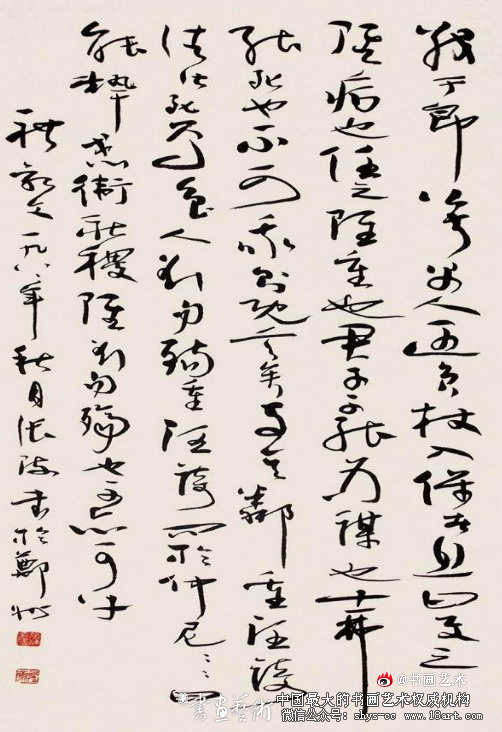 戰于郎公叔禺人遇負杖入保者息曰使之
雖病也任之雖重也君子不能為謀也士弗
能死也不可我則既言矣與其鄰重汪踦
往皆死焉魯人欲勿殤重汪踦問於仲尼〻〻曰
能執干戈以衛社稷雖欲勿殤也不亦可乎
禮記文一九八年秋月張海書於鄭州
@书画艺术
書畫藝術
中国最大的书画艺术权威机构
微信公众号：shys-cc www.18art.com